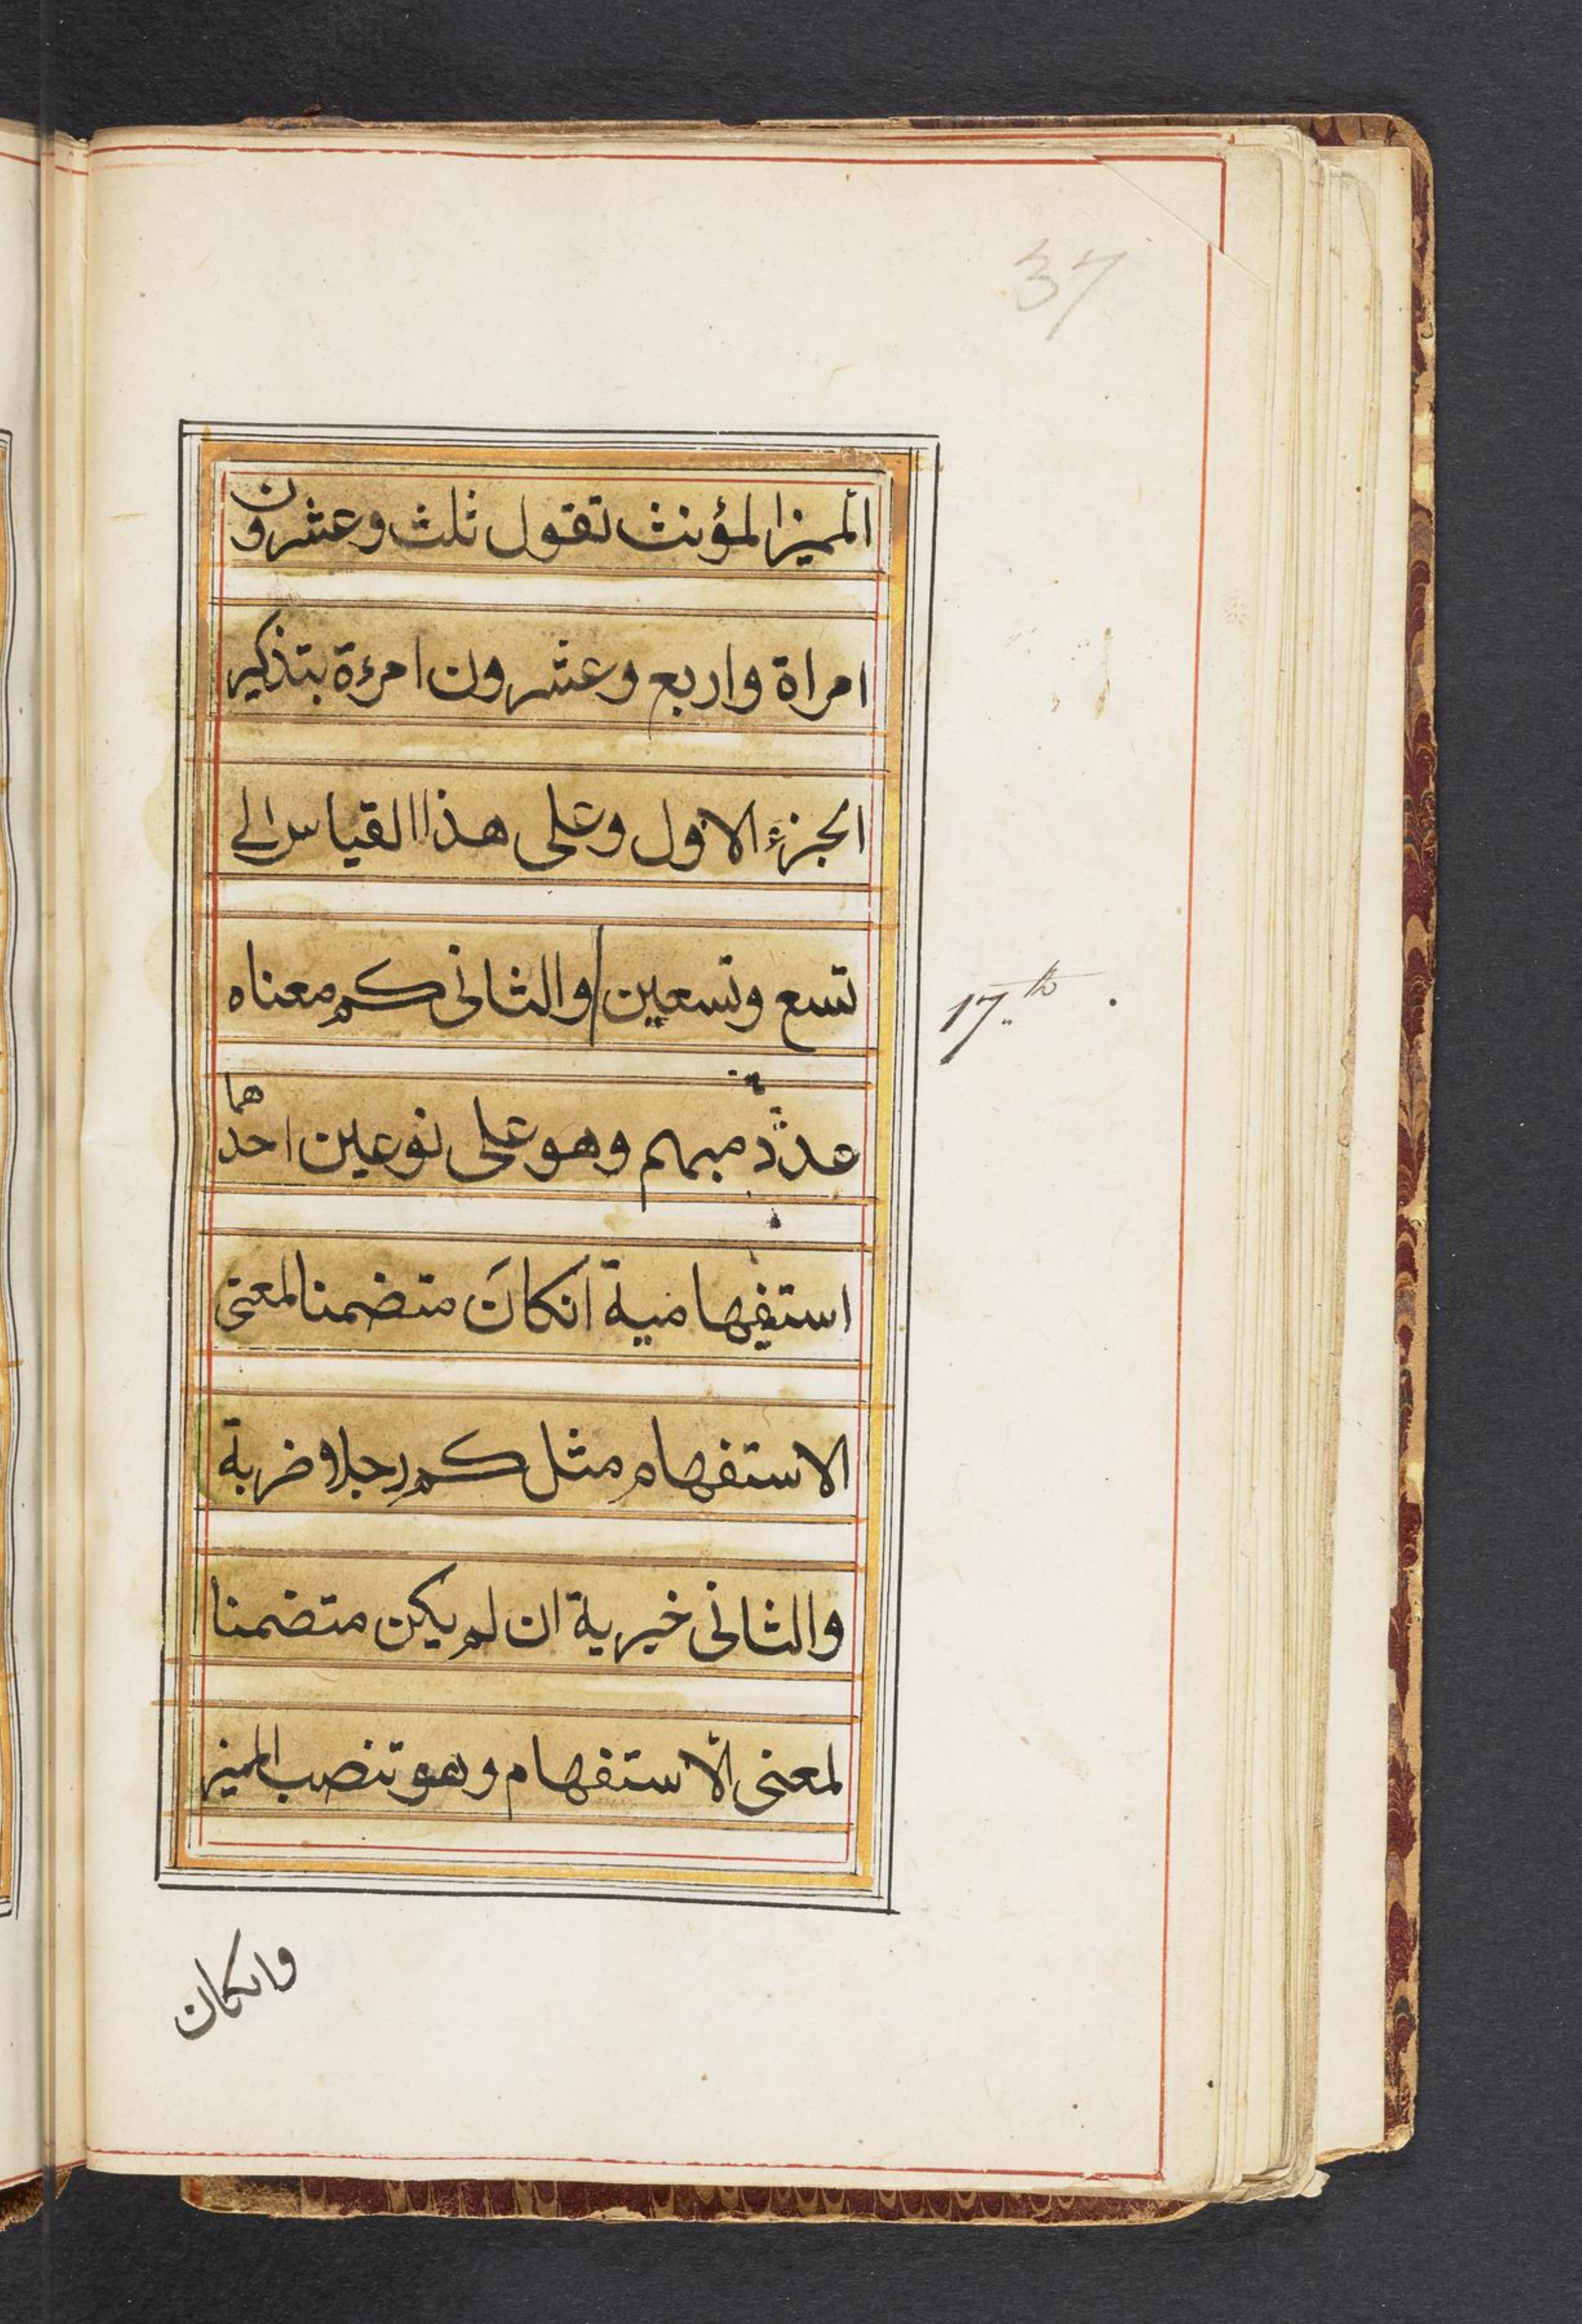 37
المميز المؤنث تقول ثلث وعشرون
امراة واربع وعشرون امرءة بتذكير
الجزء الاول وعلى هذا القياس الى
تسع وتسعين والثانى كم معناه
17th
عددٌ مبهم وهو على نوعين احدهما
استفهامية انكانَ متضمنا لمعنى
الاستفهام مثل كم رجلا ضربة
والثانى خيرية ان لم يكن متضمنا
لمعنى الاستفهام وهو تنصب المميز
وانكان